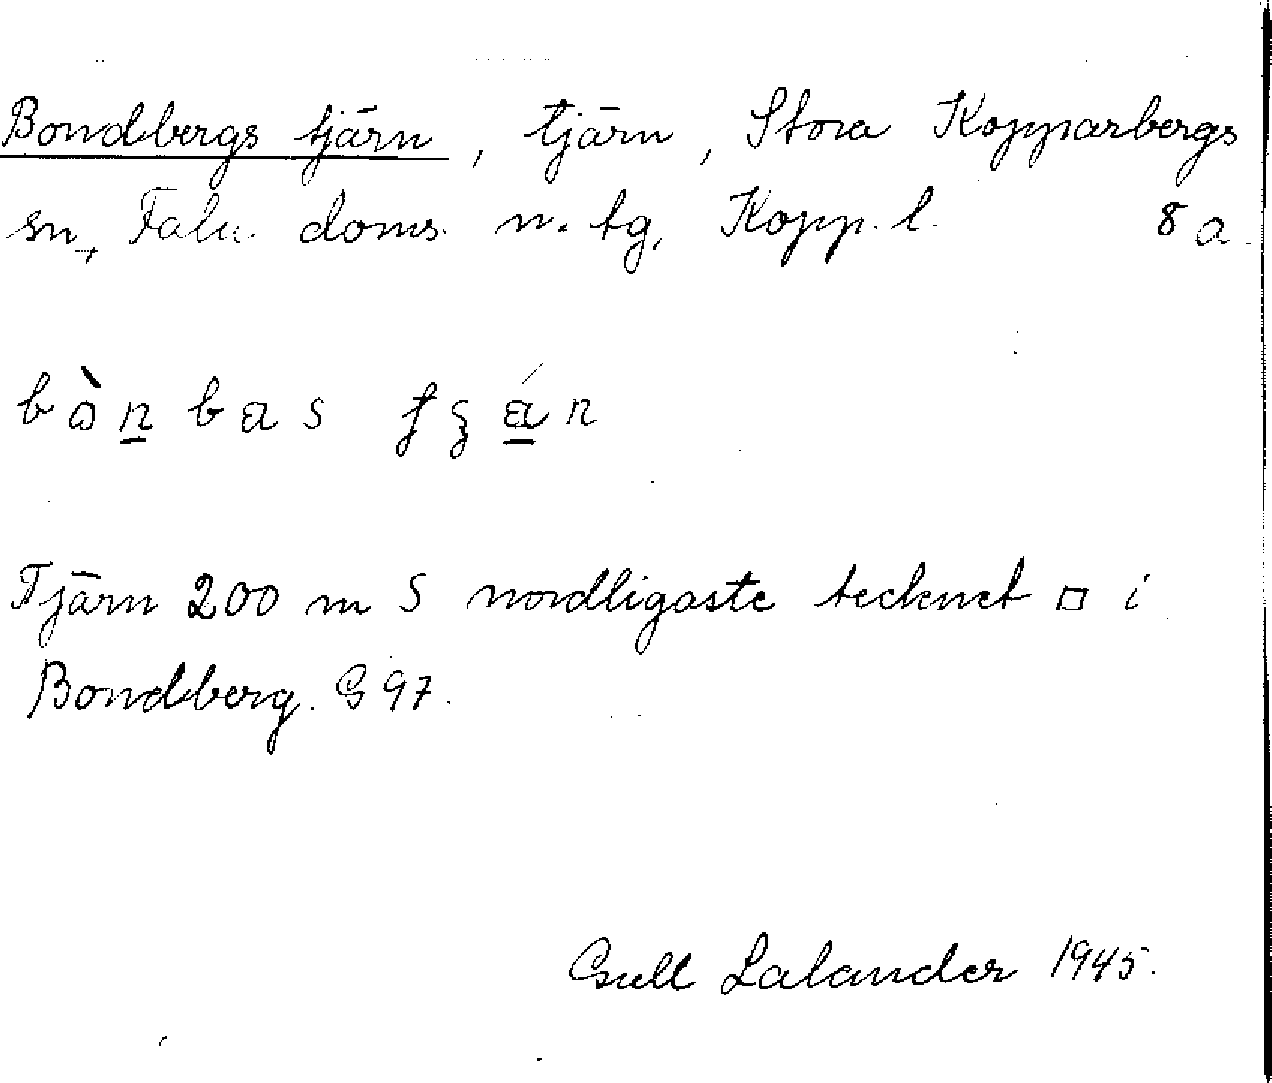 Bondbergs tjärn, tjärn, Stora Kopparbergs
sn, Falu. doms. n. tg, Kopp. l. 8 a.
Tjärn 200 m S nordligaste tecknet □ i
Bondberg. G 97.
Gull Lalander 1945.